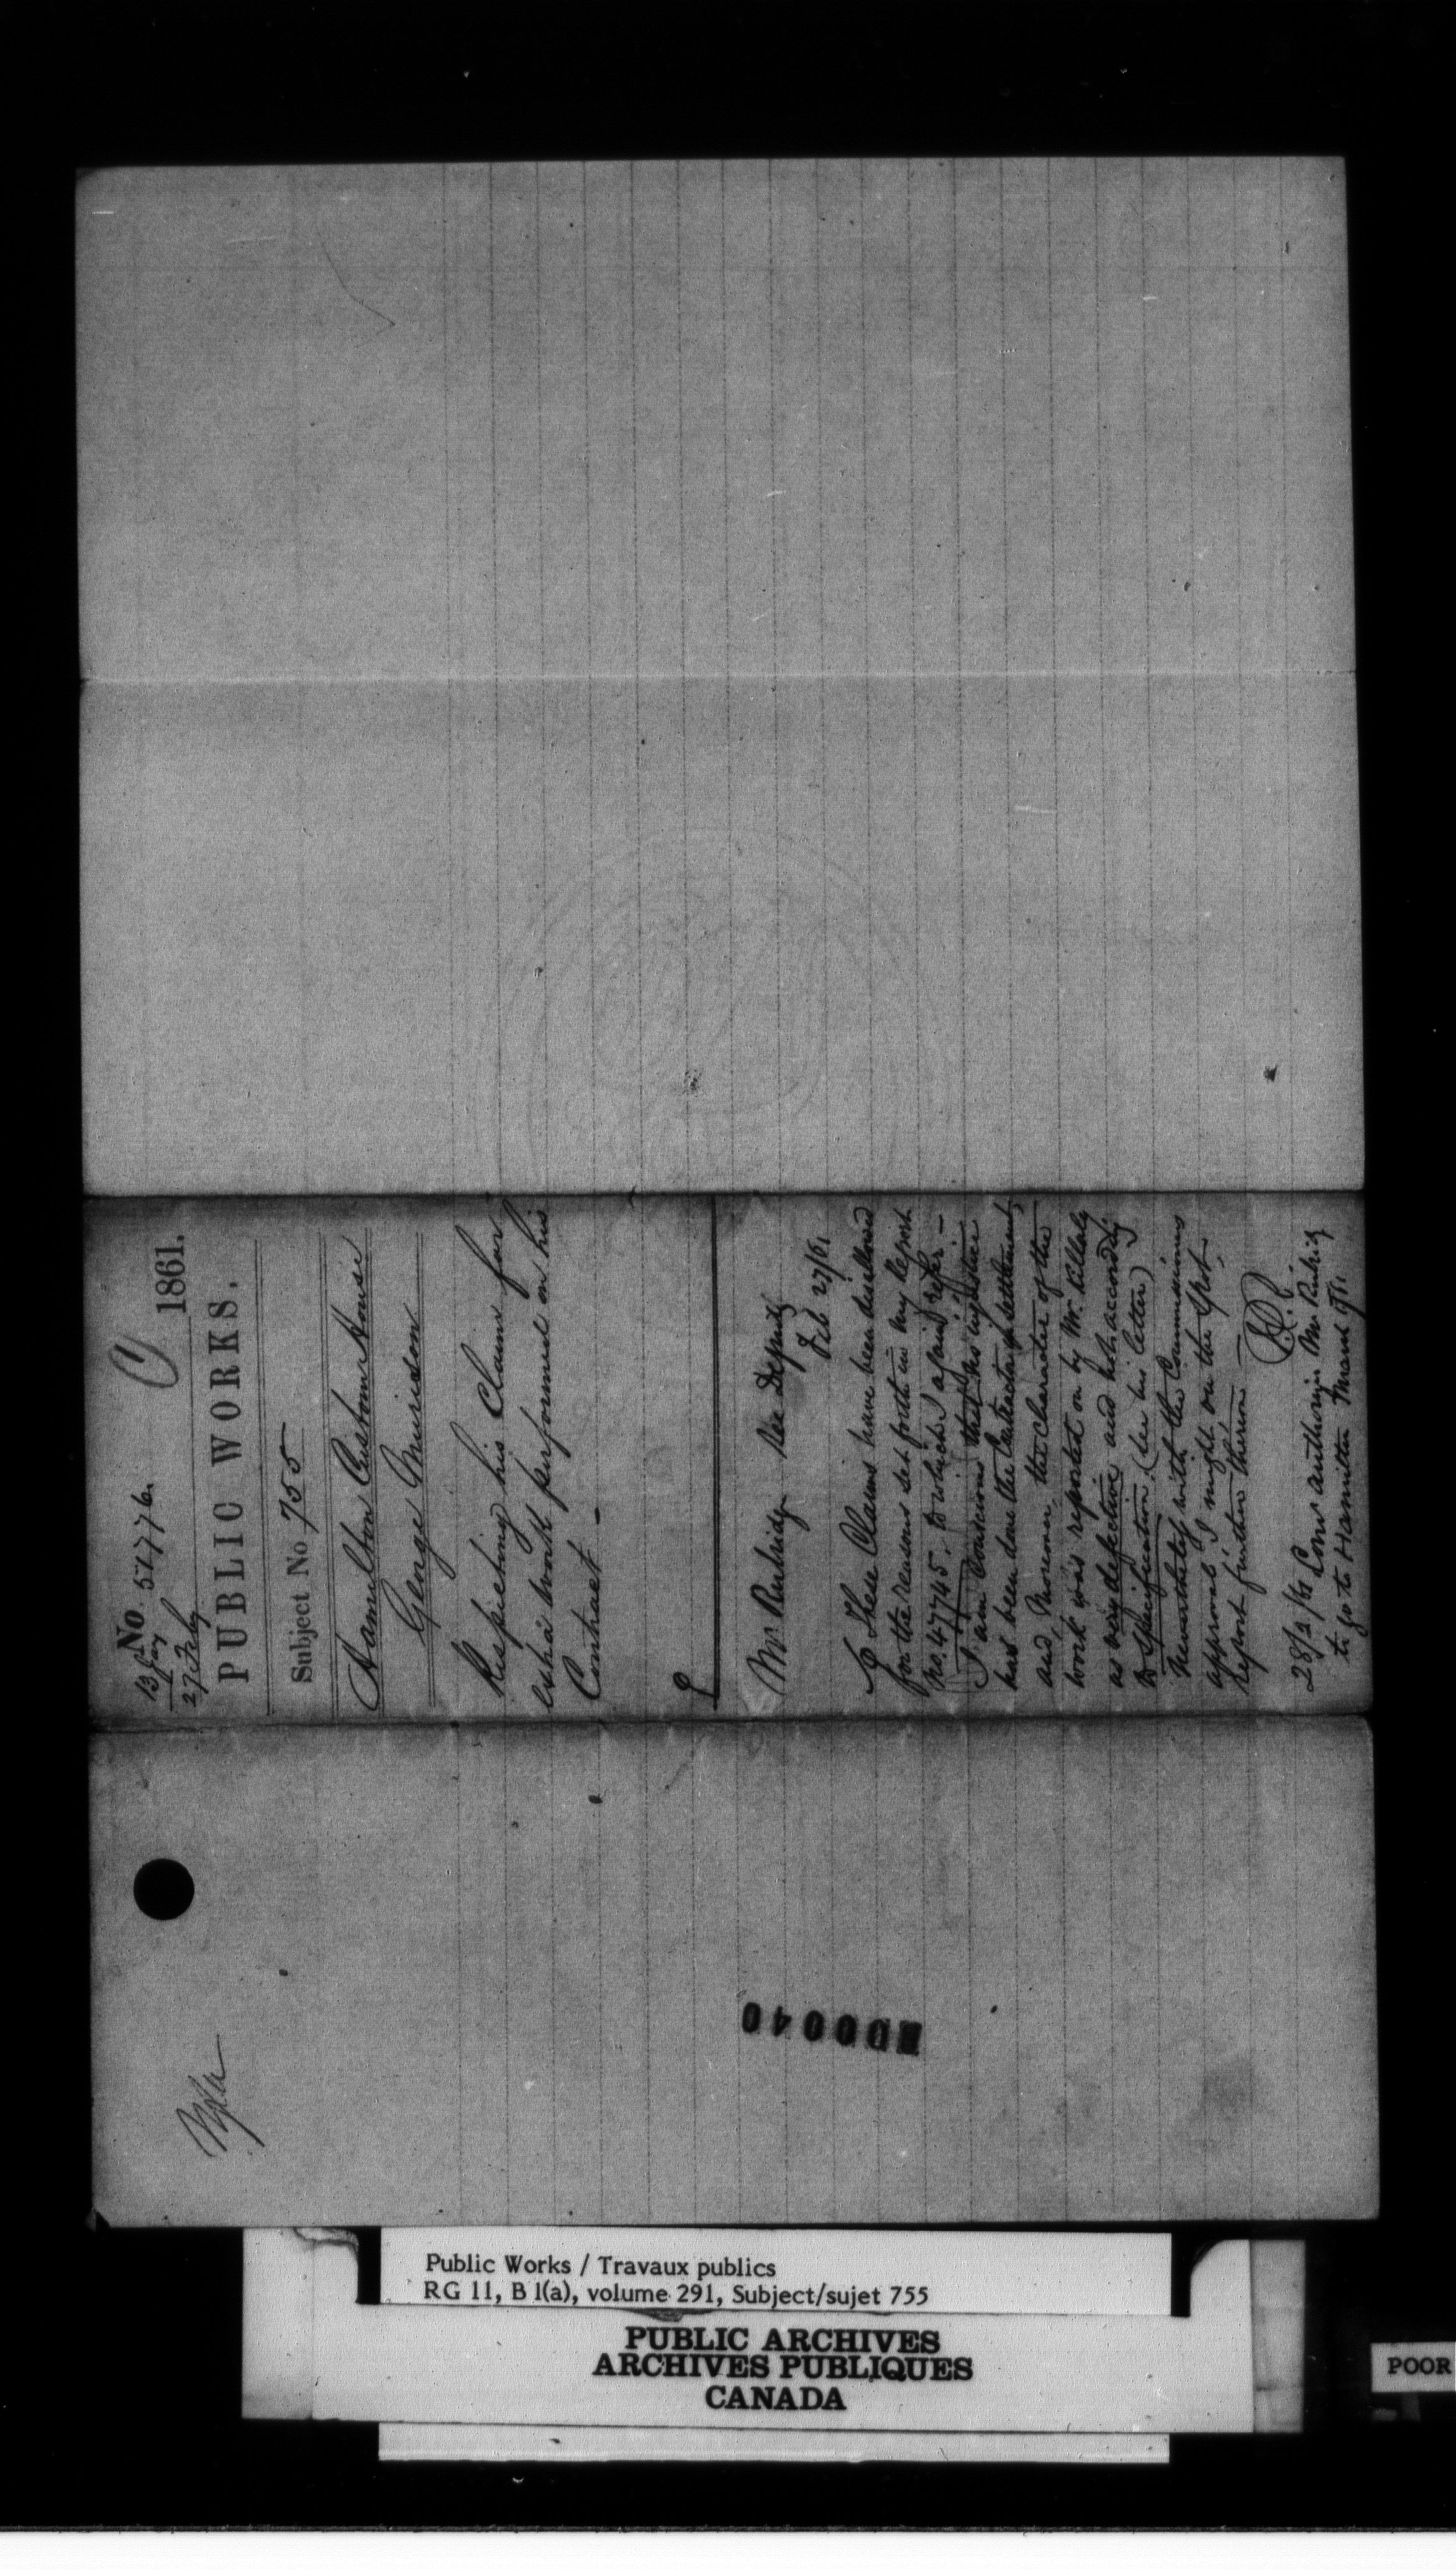 No 51776 C 1861.
13 Jany
27 Feby
PUBLIC WORKS.
Subject No 755
Hamilton Custom House
George Murison
Respecting his Claim for
extra work performed on his
Contract -
Mr Rubidge See Deputy
Feb 27/61
These Claims have been disallowed
for the reasons set forth in my Report
no. 47745. to which I again refer. -
I am conscious that no injustice
has been done the Contractor in settlement,
and, moreover, the character of the
work was reported on by Mr. Killaly
as very defective and not according
to Specification. (See his letter)
Nevertheless with the Commissioners
approval I might, on the Spot,
report further thereon -
28/2/61 Comr authorizes Mr Rubidge
to go to Hamilton
000040
Public Works / Travaux publics
RG 11, B 1(a), volume 291, Subject/sujet 755
PUBLIC ARCHIVES
ARCHIVES PUBLIQUES
CANADA
POOR